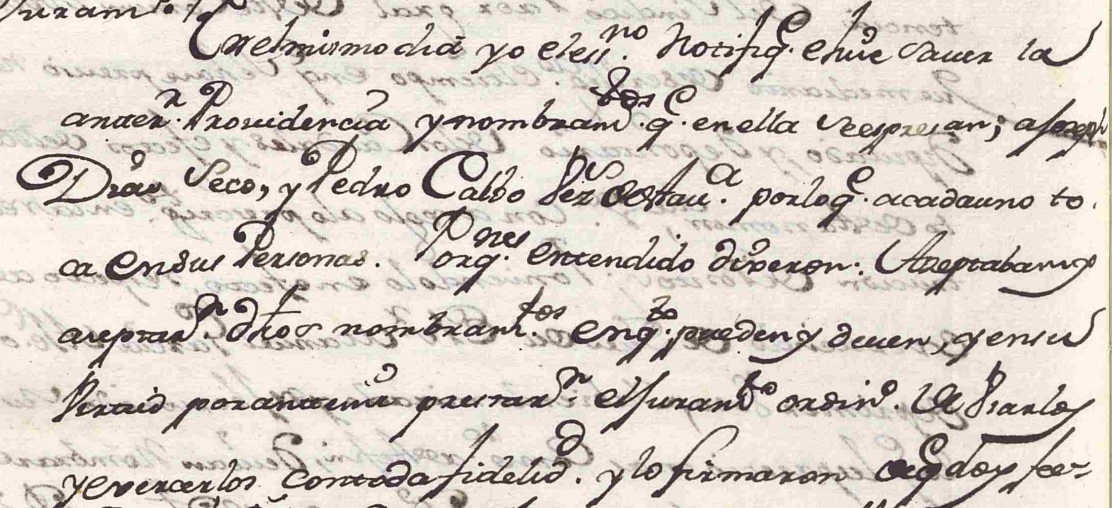 Juram.to
En el mismo dia yo el ess.no notifiq.e e hice saver la
anter.r Providencia y nombram.tos q.e en ella se espresan; a Joseph
Dias Seco, y Pedro Calbo vez.s de esta v.a por lo q.e a cada uno to
ca en sus Personas. Por q.nes entendido dixeron: Aceptaban y
aceptar.n dhos nombram.tos en q.to pueden y deven, y en su
virtud por ante mi prestar.n el Juram.to ordin.o de Usarlos
y exercerlos con toda fidelid.d y lo firmaron de q.e doy fee=